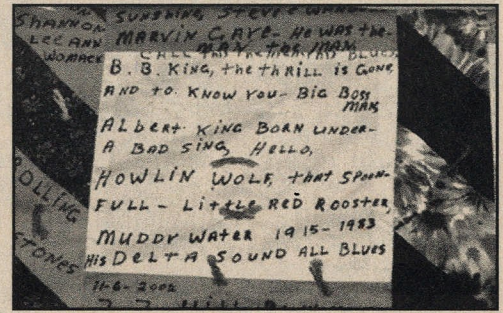 SHANNON
LEE ANN
WOMACK
SUNSHINE, STEVE
MARVIN GAYE - HE WAS the-
B. B. KING, the thRILL is GONE,
AND to KNOW YOU - BIG BOSS
MAN
ALBERt KING BORN UNDER-
A BAD SING, HELLO,
HOWLIN WOLF, thAt SPOON-
FULL - LIttLE RED ROOSTER,
MUDDY WATER 1915-1983
His DELTA SOUND ALL BLUES
11-6-2002
ROLLING
STONES